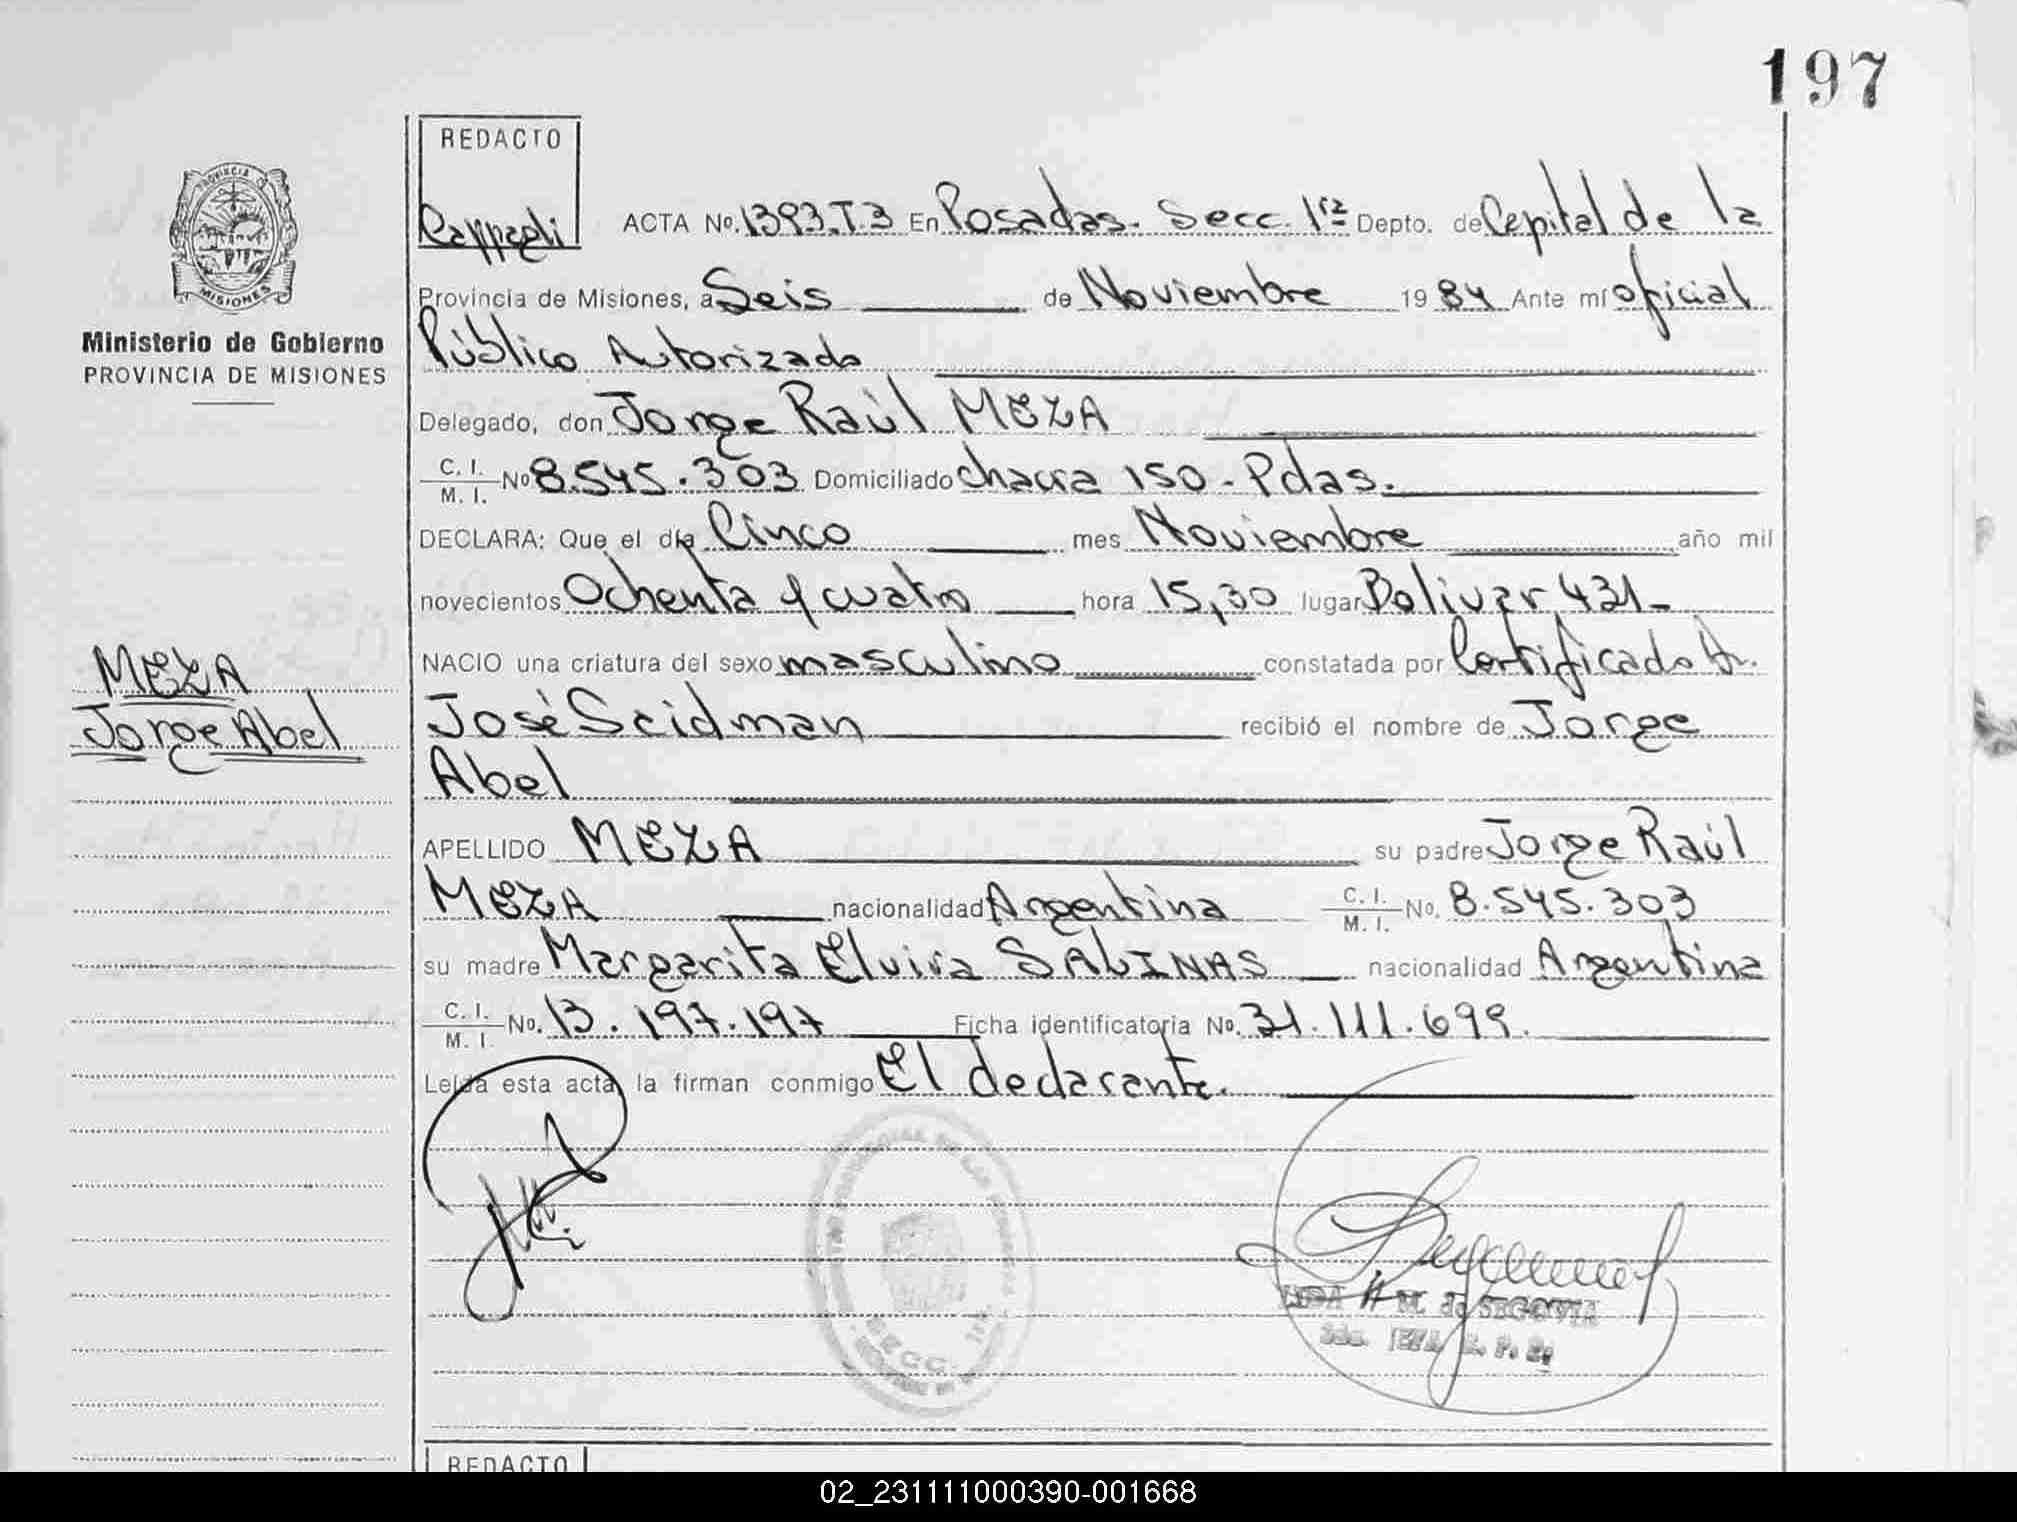 197
REDACTO
PROVINCIA DE
MISIONES
Ministerio de Gobierno
PROVINCIA DE MISIONES
ACTA No. 1393.T.3 En Posadas. Secc. 1ra Depto. de Capital de la
Provincia de Misiones, a Seis de Noviembre 1984 Ante mí oficial
Público Autorizado
Delegado, don Jorge Raúl MEZA
C. I. M. I. No 8.545.303 Domiciliado chacra 150 - Pdas.
DECLARA: Que el día Cinco mes Noviembre año mil
novecientos Ochenta y cuatro hora 15,30 lugar Bolivar 431-
NACIO una criatura del sexo masculino constatada por Certificado Dr.
MEZA
Jorge Abel
José Seidman recibió el nombre de Jorge
Abel
APELLIDO MEZA su padre Jorge Raúl
MEZA nacionalidad Argentina C. I. M. I. No. 8.545.303
su madre Margarita Elvira SALINAS nacionalidad Argentina
C. I. M. I. No. 13.197.197 Ficha identificatoria No. 31.111.699.
Leída esta acta, la firman conmigo El declarante.
PROVINCIAL DE LAS PERSONAS
SECC. 1ra.
M. de SEGOVIA
2da. JEFA R. P. P.
REDACTO
02_231111000390-001668